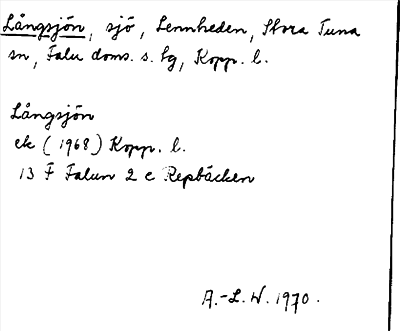 Långsjön, sjö, Lennheden, Stora Tuna
sn, Falu doms. s. lg, Kopp. l.
Långsjön
ek (1968) Kopp. l.
13 F Falun 2 c Repbäcken
A.-L. W. 1970.